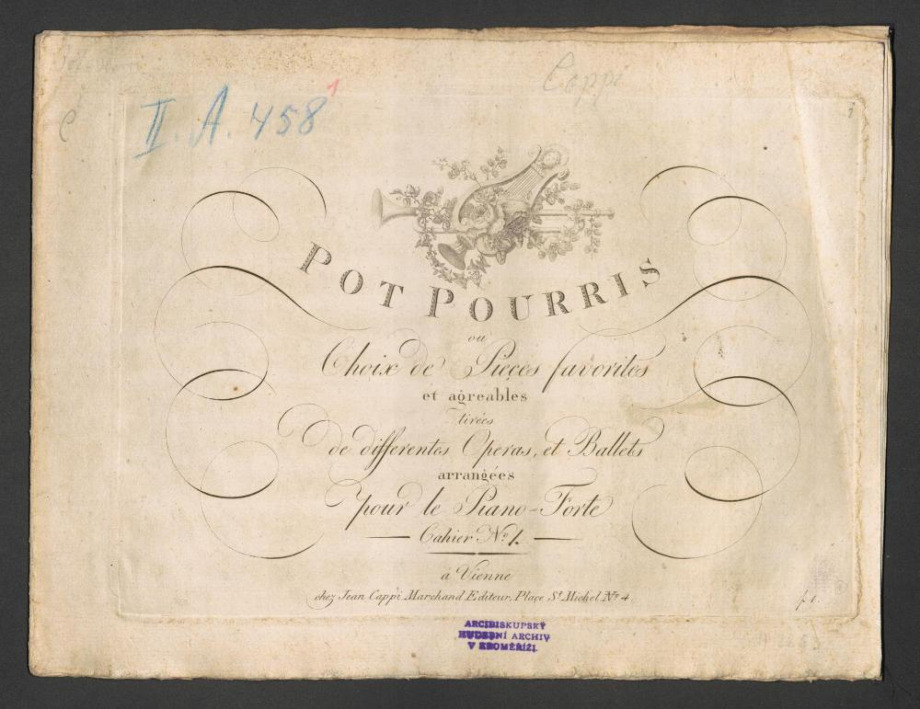 Cappi
II. A. 458
1
POT POURRIS
ou
Choix de Pieçes favorites
et agreables
tirées
de differentes Operas, et Ballets
arrangées
pour le Piano-Forte
Cahier No 1.
à Vienne
chez Jean Cappi Marchand Editeur, Plaçe St Michel No 4
ARCIBISKUPSKÝ
HUDEBNÍ ARCHIV
V KROMĚŘÍŽI